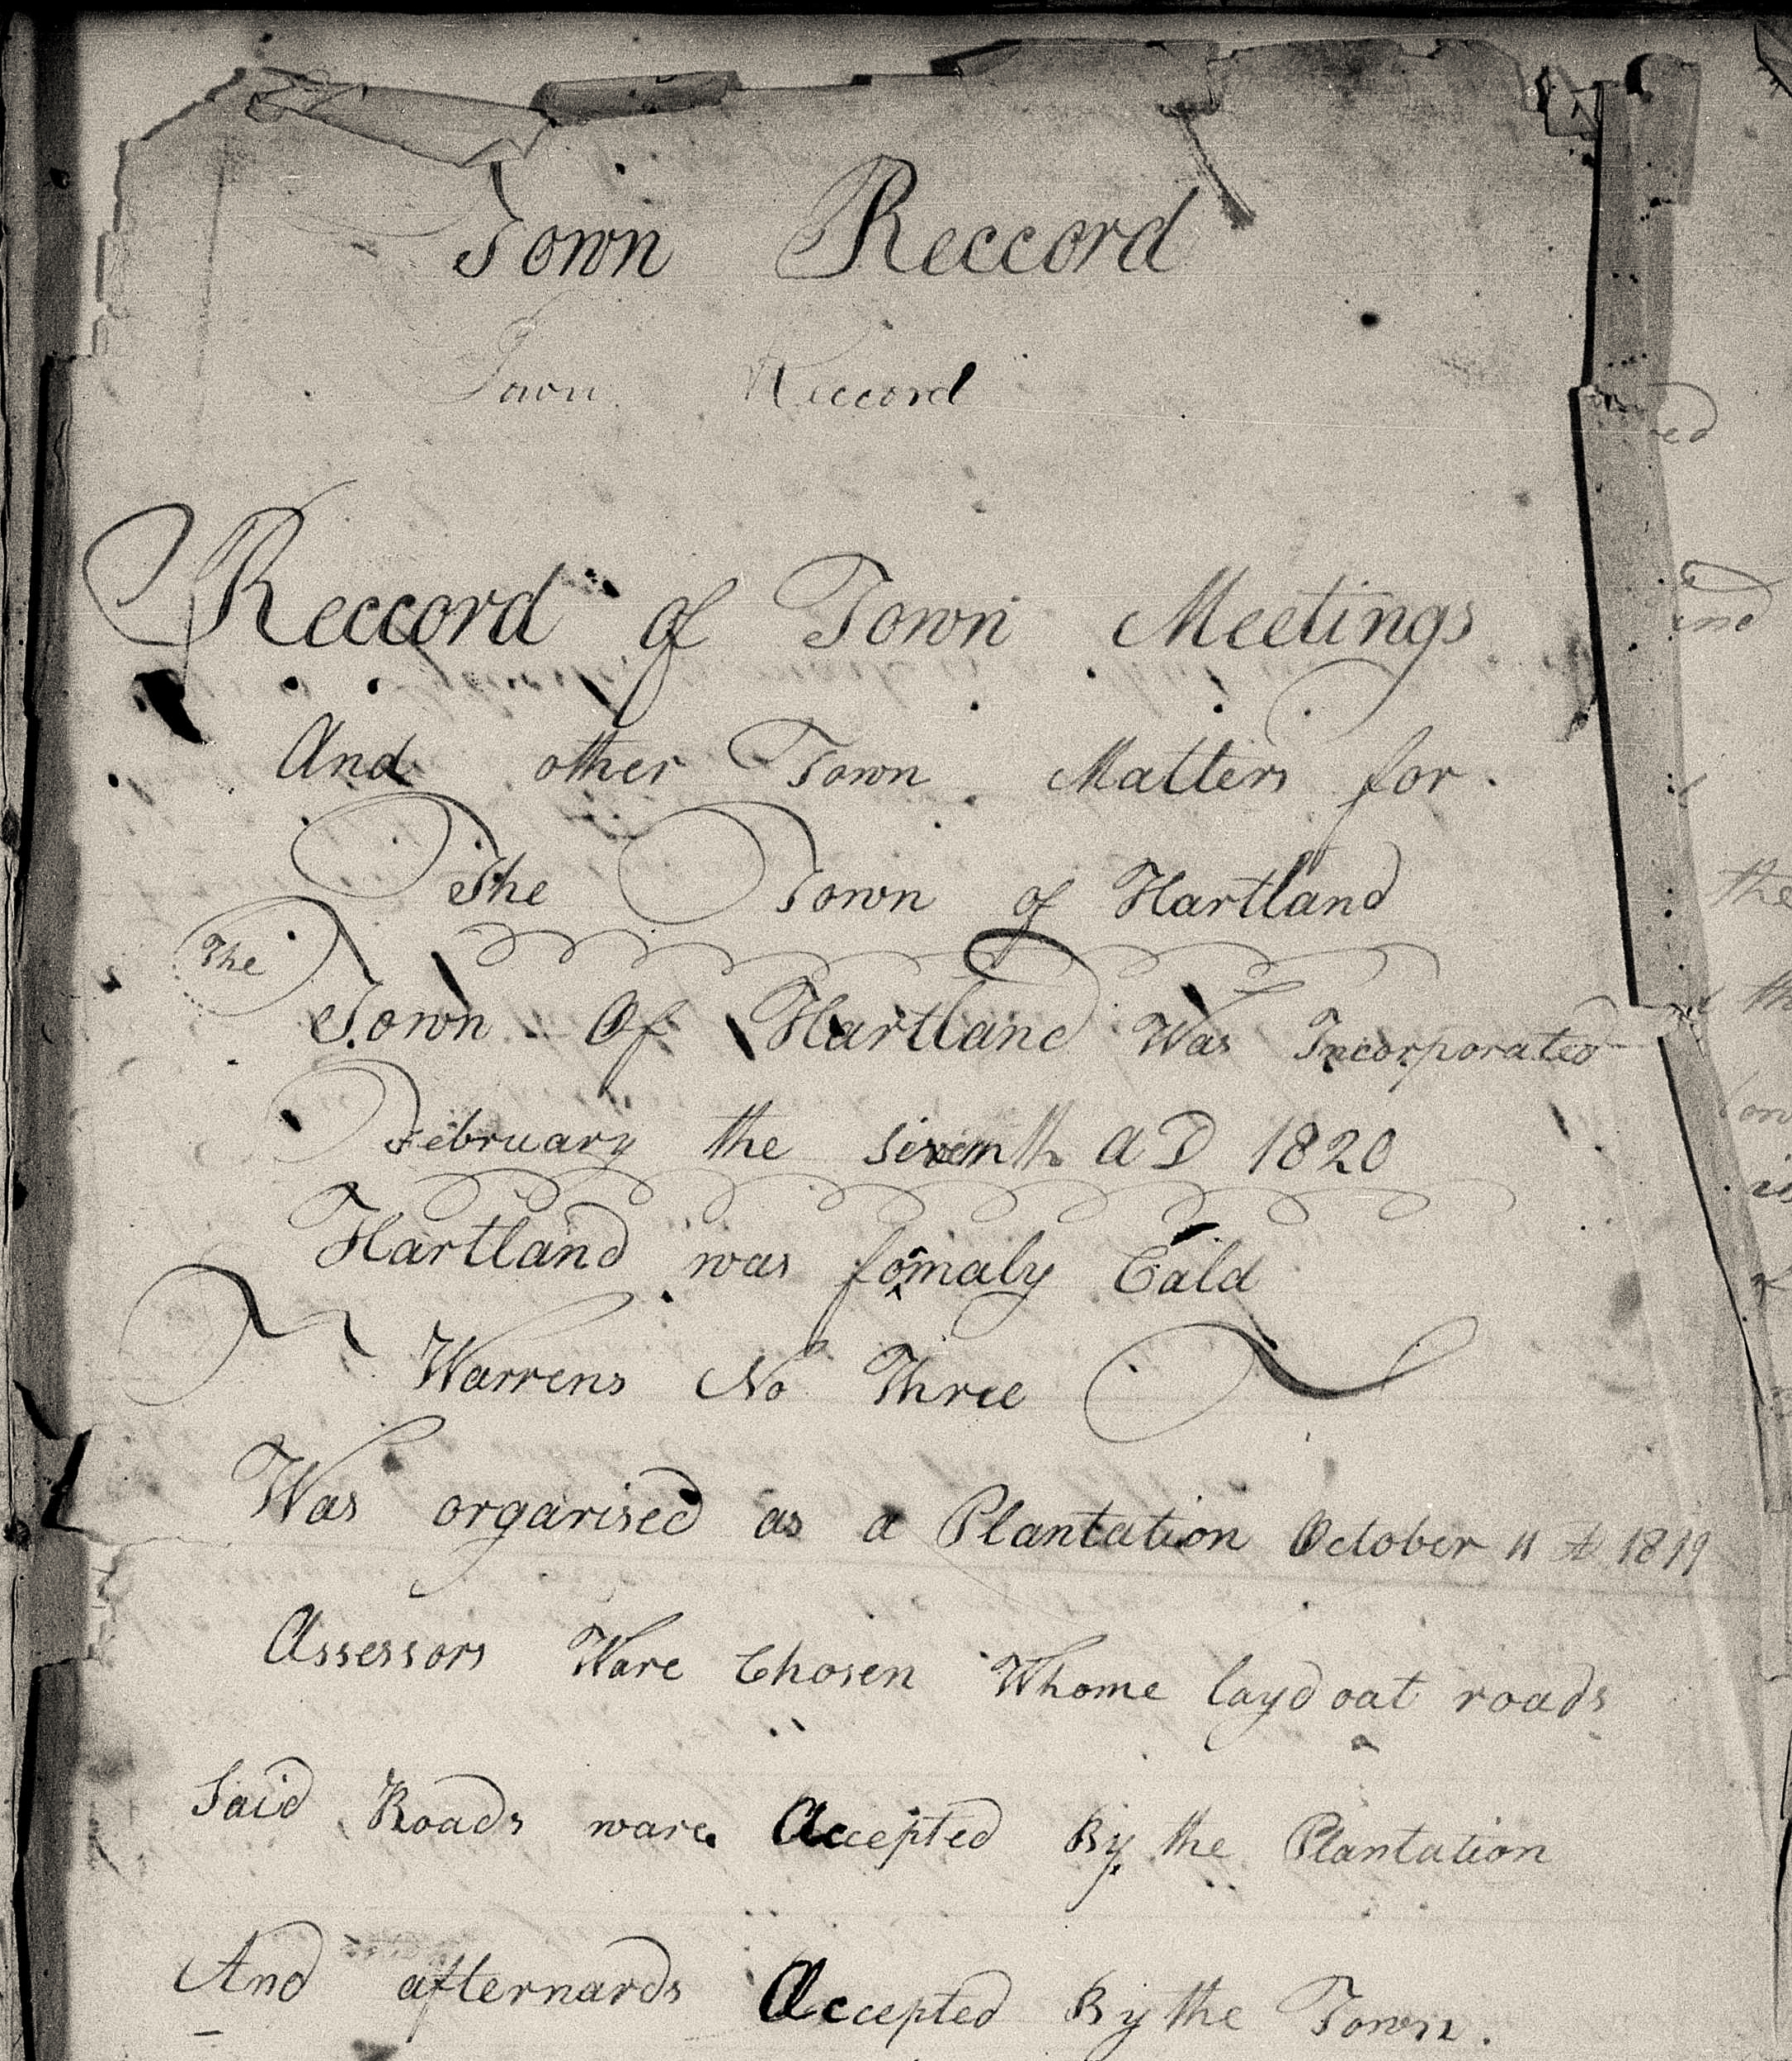 Town Reccord
Town Reccord
Reccord of Town Meetings
And other Town Matters for.
The Town of Hartland
The
Town Of Hartland Was Incorporated
February the seventh AD 1820
Hartland was fomaly Cald
Warrens No Three
Was organised as a Plantation October 11 AD 1819
Assessors Ware Chosen Whome layd out roads
Said Roads ware Accepted By the Plantation
And afterwards Accepted By the Town.